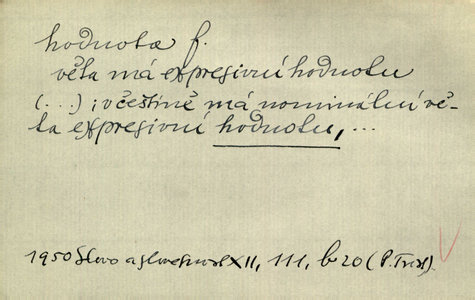 hodnota f.
věta má expresivní hodnotu
(...); v češtině má nominální vě-
ta expresivní hodnotu, ...
1950 Slovo a slovesnost XII, 111, b 20 (P. Trost)